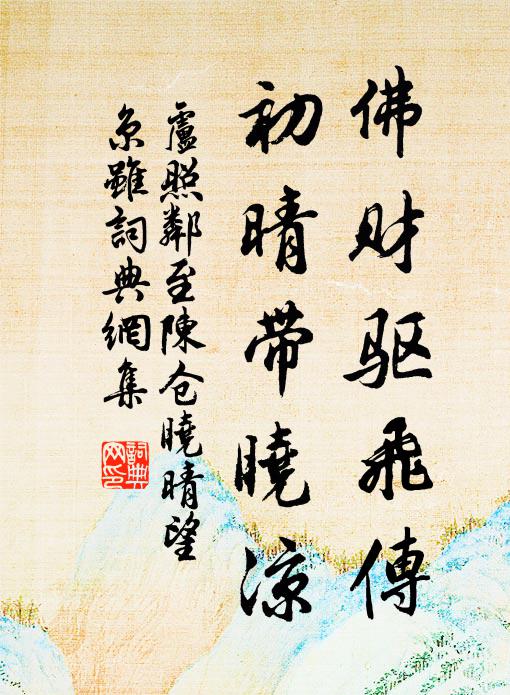 佛财驱飛傳
初晴帶曉凉
盧照鄰至陳仓曉晴望
京雖詞典網集
詞典
网印